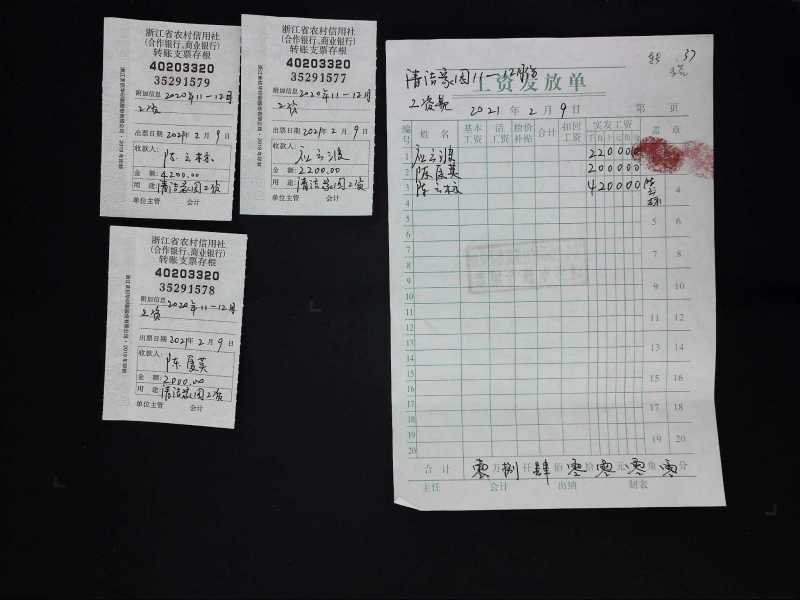 浙江省农村信用社
(合作银行、商业银行)
转账支票存根
40203320
35291579
附加信息 2020年11-12月
工资
出票日期 2021年 2 月 9 日
收款人:
金 额: 4200.00
用 途: 清洁家园工资
单位主管 会计
浙江省农村信用社
(合作银行、商业银行)
转账支票存根
40203320
35291577
附加信息 2020年11-12月
工资
出票日期 2021年 2 月 9 日
收款人:
金 额: 2200.00
用 途: 清洁家园工资
单位主管 会计
浙江省农村信用社
(合作银行、商业银行)
转账支票存根
40203320
35291578
附加信息 2020年11-12月
工资
出票日期 2021年 2 月 9 日
收款人: 陈夏英
金 额: 2000.00
用 途: 清洁家园工资
单位主管 会计
37
清洁家园11-12月份
工资发放单
2021 年 2 月 9 日 第 页
编号 姓 名 基本工资 活工资 粮价补贴 合计 扣回工资 实发工资 盖 章
千 百 十 元 角 分
1 220000
2 陈夏英 200000
3 420000 4
4
5 5 6
6
7 7 8
8
9 9 10
10
11 11 12
12
13 13 14
14
15 15 16
16
17 17 18
18
19 19 20
20
合 计 零 万 捌 仟 肆 佰 零 拾 零 元 零 角 零 分
主任 会计 出纳 制表